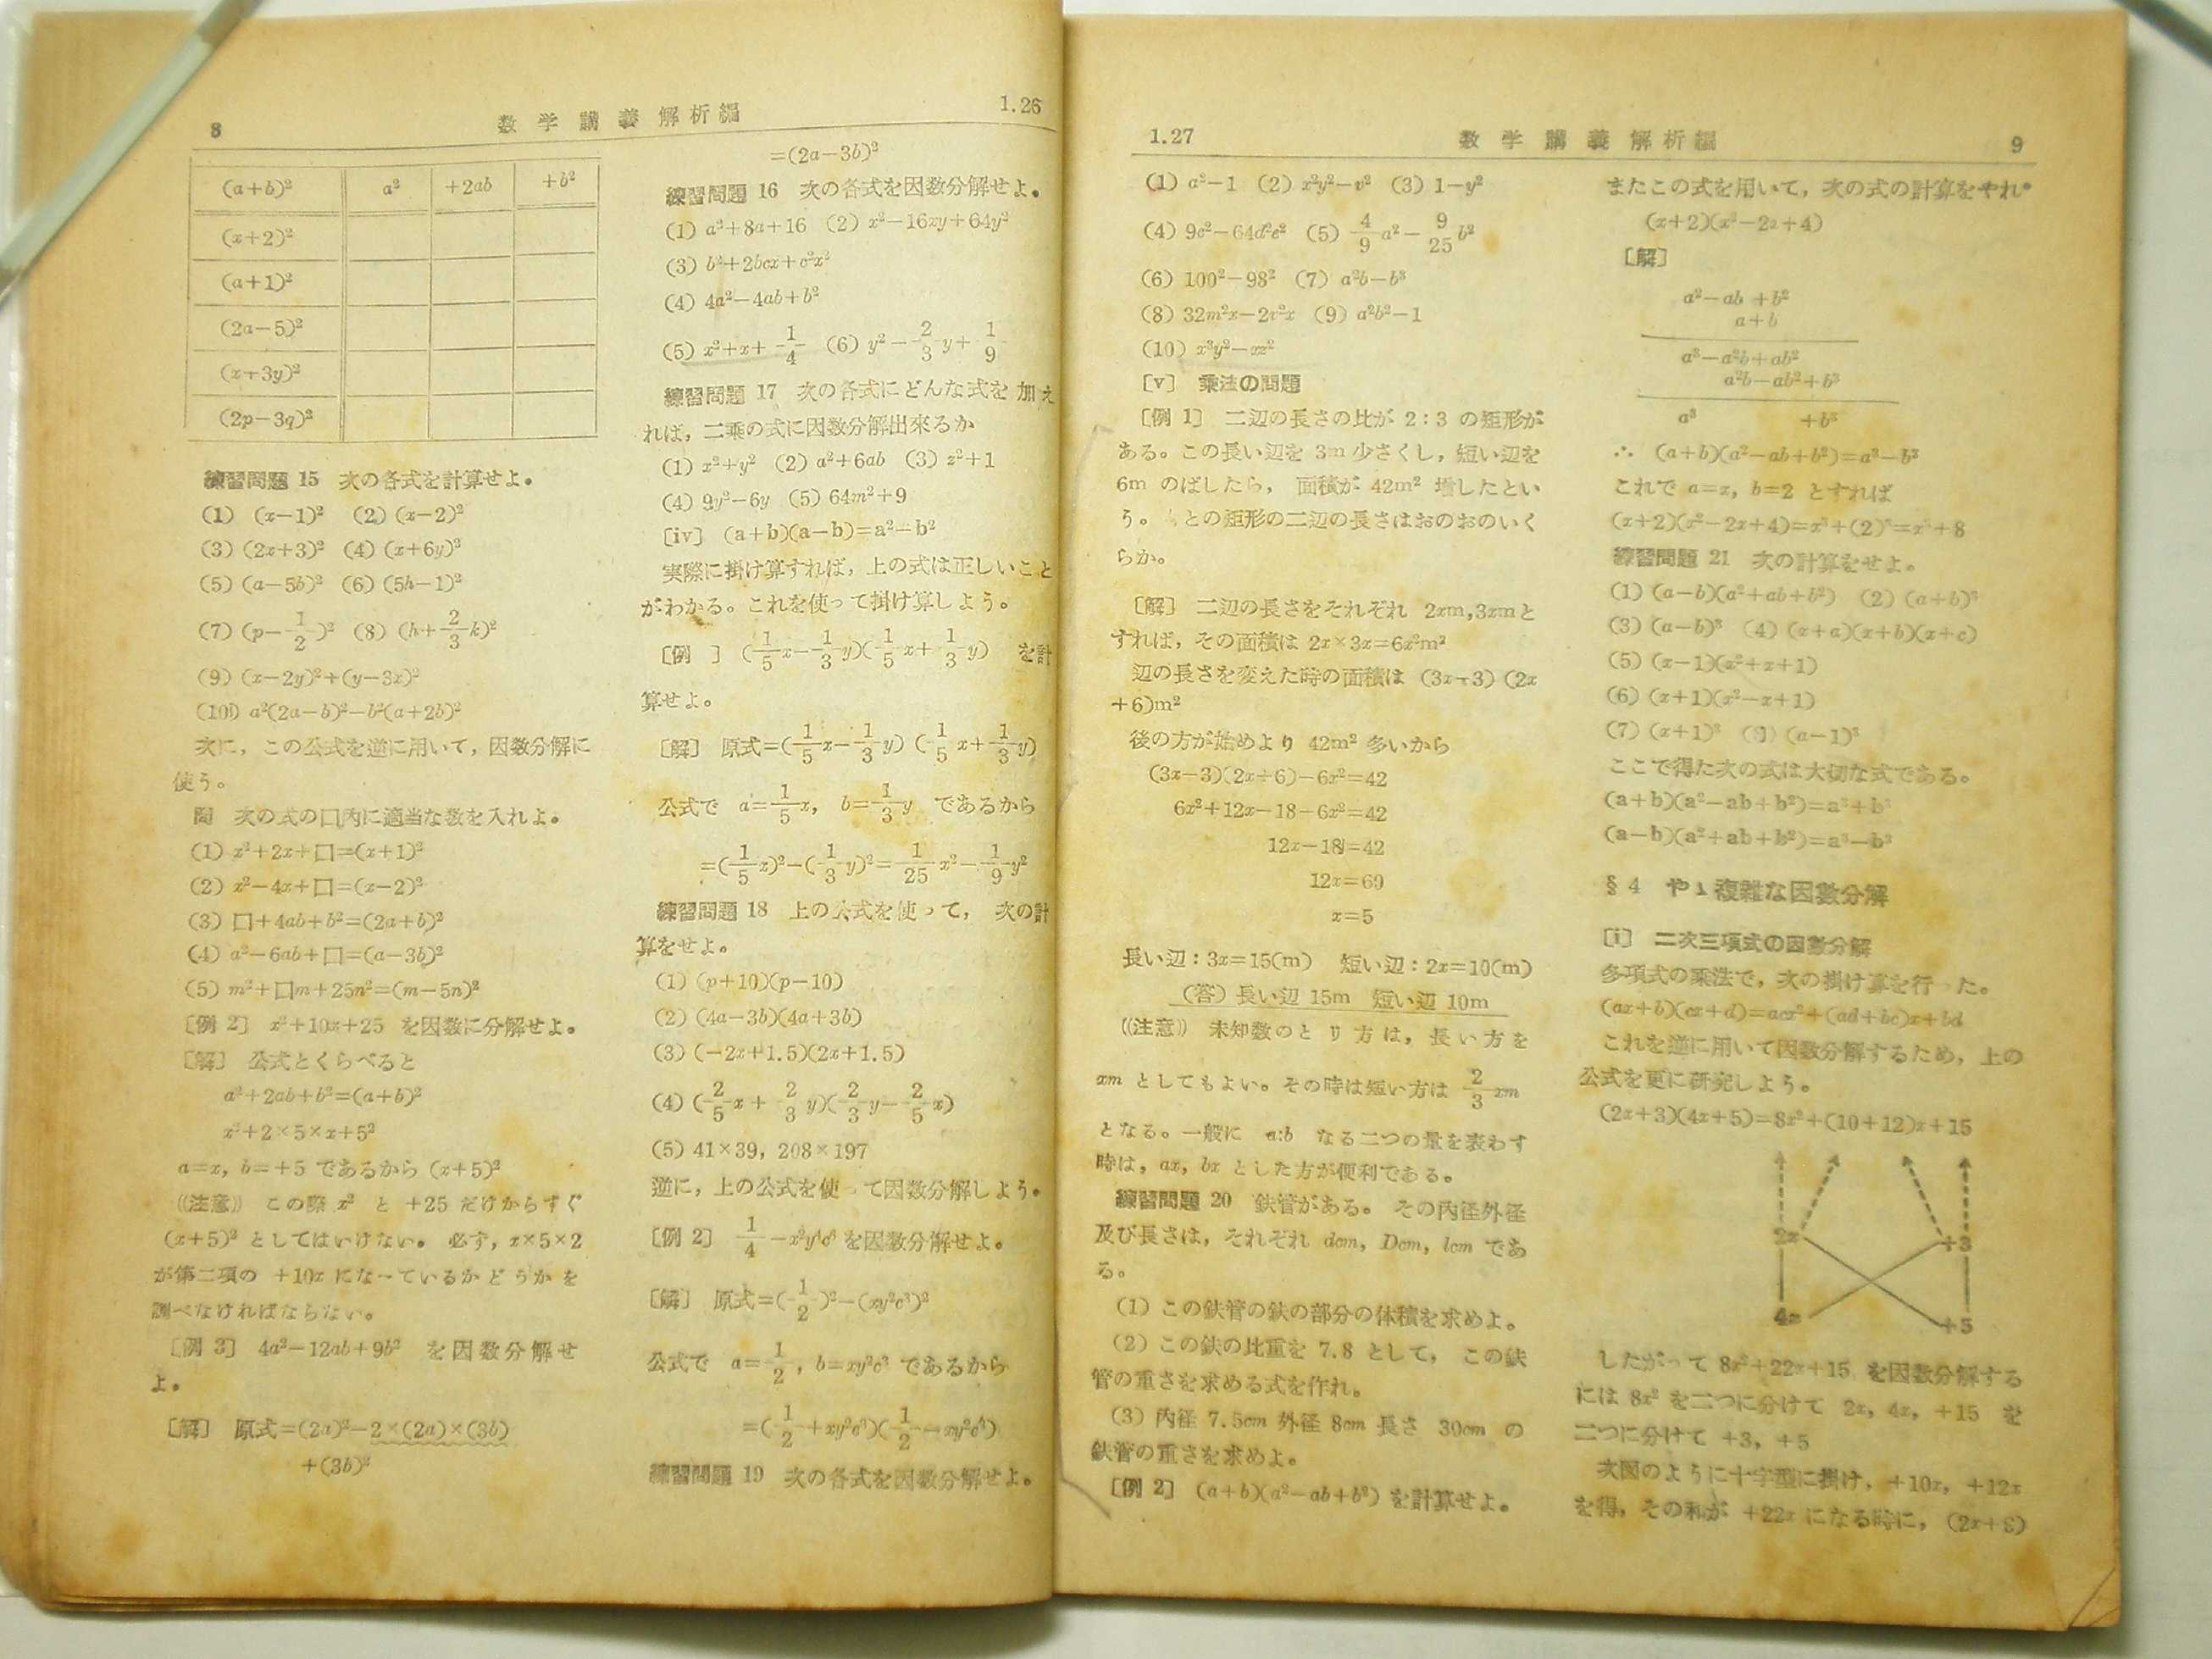 8 数学講義解析編 1.26
(a+b)² a² +2ab +b²
(x+2)²
(a+1)²
(2a-5)²
(x+3y)²
(2p-3q)²
練習問題 15 次の各式を計算せよ。
(1) (x-1)² (2) (x-2)²
(3) (2x+3)² (4) (x+6y)²
(5) (a-5b)² (6) (5h-1)²
(7) (p-1/2)² (8) (h+2/3k)²
(9) (x-2y)²+(y-3x)²
(10) a²(2a-b)²-b²(a+2b)²
次に，この公式を逆に用いて，因数分解に
使う。
問 次の式の口内に適当な数を入れよ。
(1) x²+2x+口=(x+1)²
(2) x²-4x+口=(x-2)²
(3) 口+4ab+b²=(2a+b)²
(4) a²-6ab+口=(a-3b)²
(5) m²+口m+25n²=(m-5n)²
〔例 2〕 x²+10x+25 を因数に分解せよ。
〔解〕 公式とくらべると
a²+2ab+b²=(a+b)²
x²+2×5×x+5²
a=x, b=+5 であるから (x+5)²
((注意)) この際 x² と +25 だけからすぐ
(x+5)² としてはいけない。 必ず，x×5×2
が第二項の +10x になっているかどうかを
調べなければならない。
〔例 3〕 4a²-12ab+9b² を因数分解せ
よ。
〔解〕 原式=(2a)²-2×(2a)×(3b)
+(3b)²
=(2a-3b)²
練習問題 16 次の各式を因数分解せよ。
(1) a²+8a+16 (2) x²-16xy+64y²
(3) b²+2bcx+c²x²
(4) 4a²-4ab+b²
(5) x²+x+1/4 (6) y²-2/3y+1/9
練習問題 17 次の各式にどんな式を加え
れば，二乗の式に因数分解出來るか
(1) x²+y² (2) a²+6ab (3) z²+1
(4) 9y²-6y (5) 64m²+9
[iv] (a+b)(a-b)=a²-b²
実際に掛け算すれば，上の式は正しいこと
がわかる。これを使って掛け算しよう。
〔例 〕 (1/5x-1/3y)(1/5x+1/3y) を計
算せよ。
〔解〕 原式=(1/5x-1/3y)(1/5x+1/3y)
公式で a=1/5x, b=1/3y であるから
=(1/5x)²-(1/3y)²=1/25x²-1/9y²
練習問題 18 上の公式を使って， 次の計
算をせよ。
(1) (p+10)(p-10)
(2) (4a-3b)(4a+3b)
(3) (-2x+1.5)(2x+1.5)
(4) (2/5x+2/3y)(2/3y-2/5x)
(5) 41×39, 208×197
逆に，上の公式を使って因数分解しよう。
〔例 2〕 1/4-x²y⁴c⁶ を因数分解せよ。
〔解〕 原式=(1/2)²-(xy²c³)²
公式で a=1/2, b=xy²c³ であるから
=(1/2+xy²c³)(1/2-xy²c³)
練習問題 19 次の各式を因数分解せよ。
1.27 数学講義解析編 9
(1) a²-1 (2) x²y²-v² (3) 1-y²
(4) 9c²-64d²e² (5) 4/9a²-9/25b²
(6) 100²-98² (7) a²b-b³
(8) 32m²x-2v²x (9) a²b²-1
(10) x³y²-xz²
[v] 乗法の問題
〔例 1〕 二辺の長さの比が 2:3 の矩形が
ある。この長い辺を 3m 少さくし，短い辺を
6m のばしたら， 面積が 42m² 増したとい
う。もとの矩形の二辺の長さはおのおのいく
らか。
〔解〕 二辺の長さをそれぞれ 2xm,3xmと
すれば，その面積は 2x×3x=6x²m²
辺の長さを変えた時の面積は (3x-3)(2x
+6)m²
後の方が始めより 42m² 多いから
(3x-3)(2x+6)-6x²=42
6x²+12x-18-6x²=42
12x-18=42
12x=60
x=5
長い辺:3x=15(m) 短い辺:2x=10(m)
(答) 長い辺 15m 短い辺 10m
((注意)) 未知数のとり方は，長い方を
xm としてもよい。その時は短い方は 2/3xm
となる。一般に a:b なる二つの量を表わす
時は，ax, bx とした方が便利である。
練習問題 20 鉄管がある。 その内径外径
及び長さは，それぞれ dcm, Dcm, lcm であ
る。
(1) この鉄管の鉄の部分の体積を求めよ。
(2) この鉄の比重を 7.8 として， この鉄
管の重さを求める式を作れ。
(3) 内径 7.5cm 外径 8cm 長さ 30cm の
鉄管の重さを求めよ。
〔例 2〕 (a+b)(a²-ab+b²) を計算せよ。
またこの式を用いて，次の式の計算をやれ。
(x+2)(x²-2x+4)
〔解〕
a²-ab+b²
a+b
a³-a²b+ab²
a²b-ab²+b³
a³ +b³
∴ (a+b)(a²-ab+b²)=a³-b³
これで a=x, b=2 とすれば
(x+2)(x²-2x+4)=x³+(2)³=x³+8
練習問題 21 次の計算をせよ。
(1) (a-b)(a²+ab+b²) (2) (a+b)³
(3) (a-b)³ (4) (x+a)(x+b)(x+c)
(5) (x-1)(x²+x+1)
(6) (x+1)(x²-x+1)
(7) (x+1)³ (a-1)³
ここで得た次の式は大切な式である。
(a+b)(a²-ab+b²)=a³+b³
(a-b)(a²+ab+b²)=a³-b³
§4 やゝ複雑な因数分解
[i] 二次三項式の因数分解
多項式の乗法で，次の掛け算を行った。
(ax+b)(cx+d)=acx²+(ad+bc)x+bd
これを逆に用いて因数分解するため，上の
公式を更に研究しよう。
(2x+3)(4x+5)=8x²+(10+12)x+15
2x +3
4x +5
したがって 8x²+22x+15 を因数分解する
には 8x² を二つに分けて 2x, 4x, +15 を
二つに分けて +3, +5
次図のように十字型に掛け，+10x, +12x
を得，その和が +22x になる時に， (2x+3)